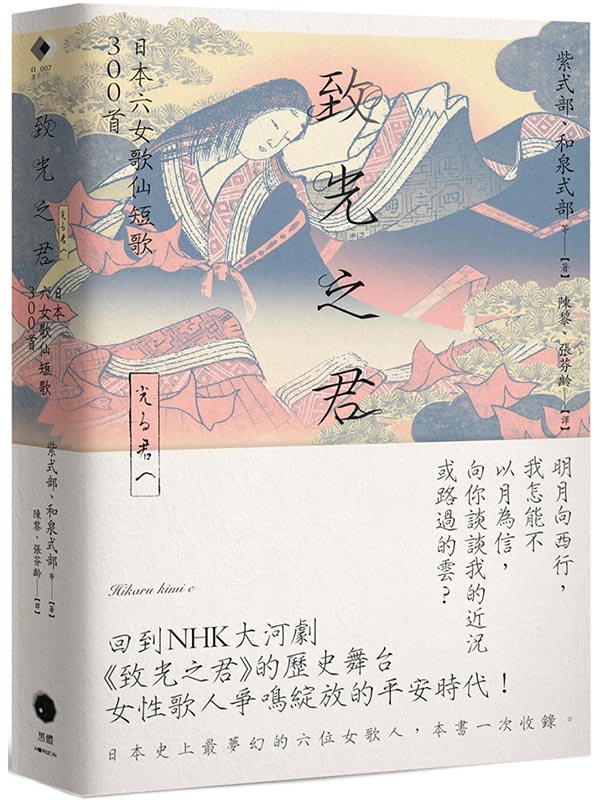 致光之君
日本六女歌仙短歌
300首
紫式部、和泉式部 等──【著】
陳黎、張芬齡──【譯】
光る君へ
明月向西行，
我怎能不
以月為信，
向你談談我的近況
或路過的雲？
Hikaru kimi e
回到NHK大河劇
《致光之君》的歷史舞台
女性歌人爭鳴綻放的平安時代！
日本史上最夢幻的六位女歌人，本書一次收錄。
007
致光之君
光る君へ
日本
六女歌仙短歌
300首
紫式部、和泉式部 等──【著】
陳黎、張芬齡──【譯】
黑體
HORIZON